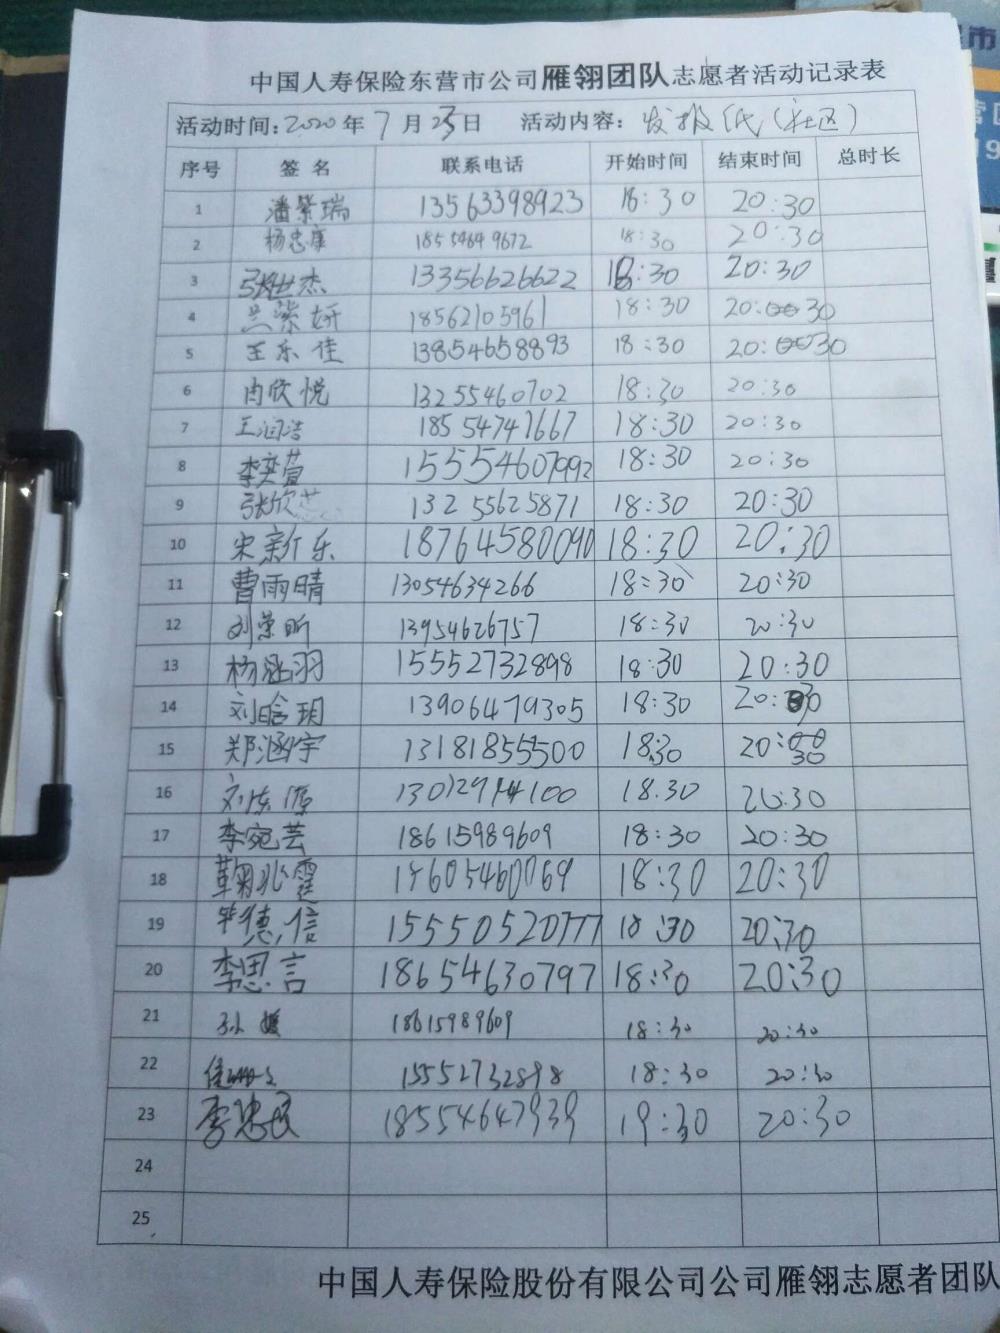 中国人寿保险东营市公司雁翎团队志愿者活动记录表
活动时间：2020年7月23日 活动内容：发报纸（社区）
序号 签名 联系电话 开始时间 结束时间 总时长
1 潘紫瑞 13563398923 18:30 20:30
2 杨忠康 18554649672 18:30 20:30
3 张世杰 13356626622 18:30 20:30
4 吴潆妍 18562105961 18:30 20:30
5 王乐佳 13854658893 18:30 20:30
6 冉欣悦 13255460702 18:30 20:30
7 王润洁 18554741667 18:30 20:30
8 李奕萱 15554607992 18:30 20:30
9 张欣芯 13255625871 18:30 20:30
10 宋新乐 18764580090 18:30 20:30
11 曹雨晴 13054634266 18:30 20:30
12 刘景昕 13954626757 18:30 20:30
13 杨涵羽 15552732898 18:30 20:30
14 刘晗玥 13906479305 18:30 20:30
15 郑涵宇 13181855500 18:30 20:30
16 刘 源 18.30 20:30
17 李宛芸 18615989609 18:30 20:30
18 鞠兆霆 18:30 20:30
19 毕德信 15550520777 18:30 20:30
20 李思言 18654630797 18:30 20:30
21 孙媛 18615989609 18:30 20:30
22 15552732898 18:30 20:30
23 李忠民 18554647939 19:30 20:30
24
25
中国人寿保险股份有限公司公司雁翎志愿者团队